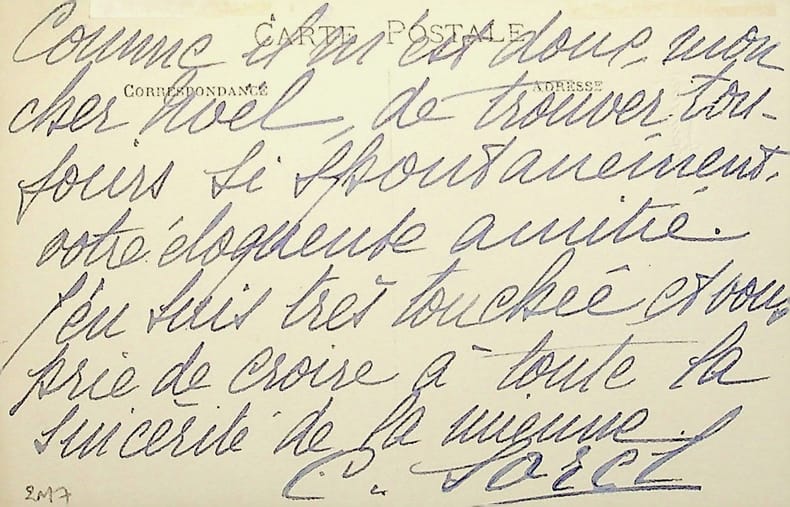 CARTE POSTALE
CORRESPONDANCE
ADRESSE
Comme il m'est doux, mon
cher Noël, de trouver tou-
jours si spontanément
votre éloquente amitié.
J'en suis très touchée, et vous
prie de croire à toute la
sincérité de la mienne.
C. Sorel
2M7